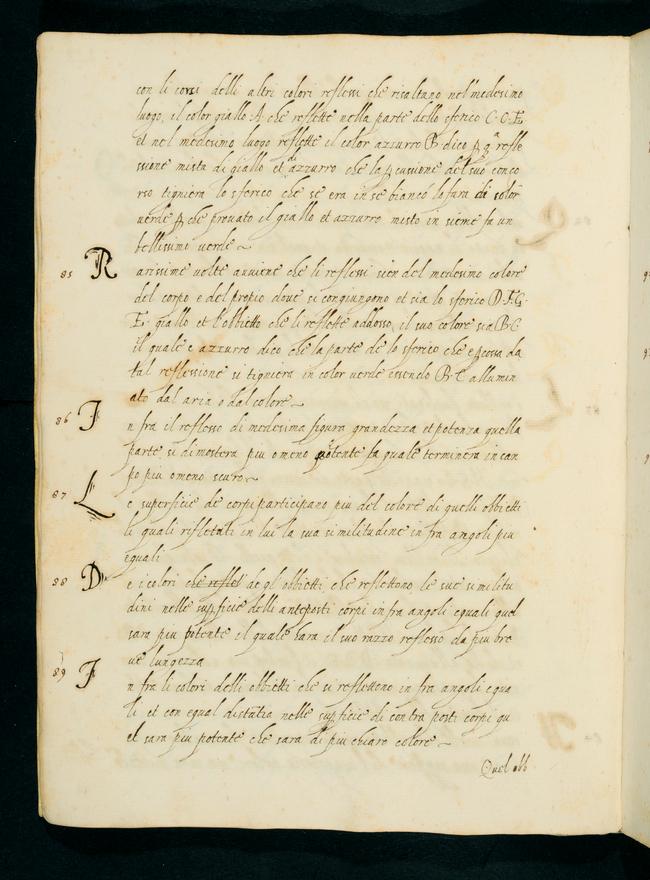 con li corsi delli altri colori reflessi che risaltano nel medesimo
luogo, il color giallo A che reflette nella parte dello sferico C·C·E·
et nel medesimo luogo reflette il color azzurro B· dico p q.a refle
ssione mista di giallo et di azzurro che la pcussione del suo conco
rso tignierà lo sferico che se era in se bianco lo fara di color
uerde p che prouato il giallo et azzurro misto in sieme fa un
bellissimo uerde ~
85 Rarissime uolte auuiene che li reflessi sien del medesimo colore
del corpo e del propio doue si congiungono et sia lo sferico D·F·G·
E· giallo et l'obbietto che li reflette addosso il suo colore sia B·C
il quale e azzurro dico che la parte de lo sferico che e pcossa da
tal reflessione si tignierà in color uerde essendo B·C allumin
ato dal aria o dal colore ~
86 In fra il reflesso di medesima figura grandezza et potenza quella
parte si dimostera piu o meno potente la quale terminera in can
po piu o meno scuro ~
87 Le superficie de corpi participano piu del colore di quelli obbietti
li quali rifletati in lui la sua similitudine in fra angoli piu
equali
88 De i colori che reflet de gl obbietti che reflettono le sue similitu
dini nelle supficie delli anteposti corpi infra angoli equali quel
sara piu potente il quale hara il suo razzo reflesso da piu bre
ue lungezza
89 In fra li colori delli obbietti che si reflettono in fra angoli equa
li et con equal distatia nelle supficie di contra posti corpi qu
el sara piu potente che sara di piu chiaro colore ~
Quel obb